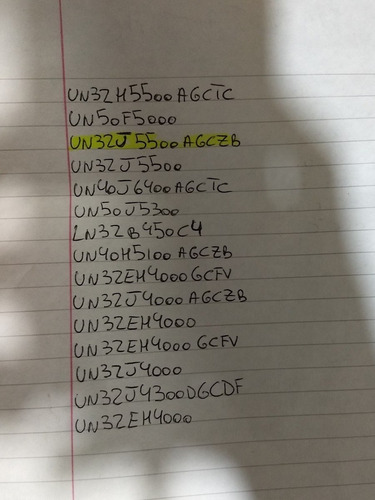 UN32H5500AGCTC
UN50F5000
UN32J5500AGCZB
UN32J5500
UN40J6400AGCTC
UN50J5300
LN32B450C4
UN40H5100AGCZB
UN32EH4000GCFV
UN32J4000AGCZB
UN32EH4000
UN32EH4000GCFV
UN32J4000
UN32J4300DGCDF
UN32EH4000